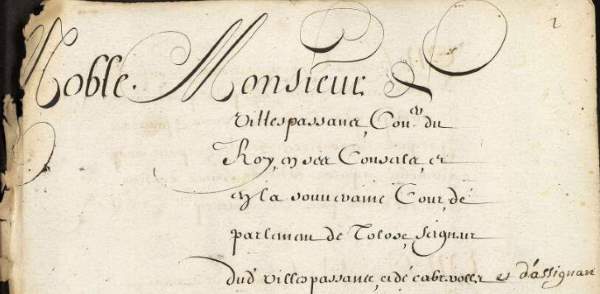 2
Noble Monsieur de
Villespassans, Con.er du
Roy, en ses Conseils, et
en la souveraine Cour, de
parlement de Tolose, seigneur
dud. villespassans, et de cabrerolles et d'assignan